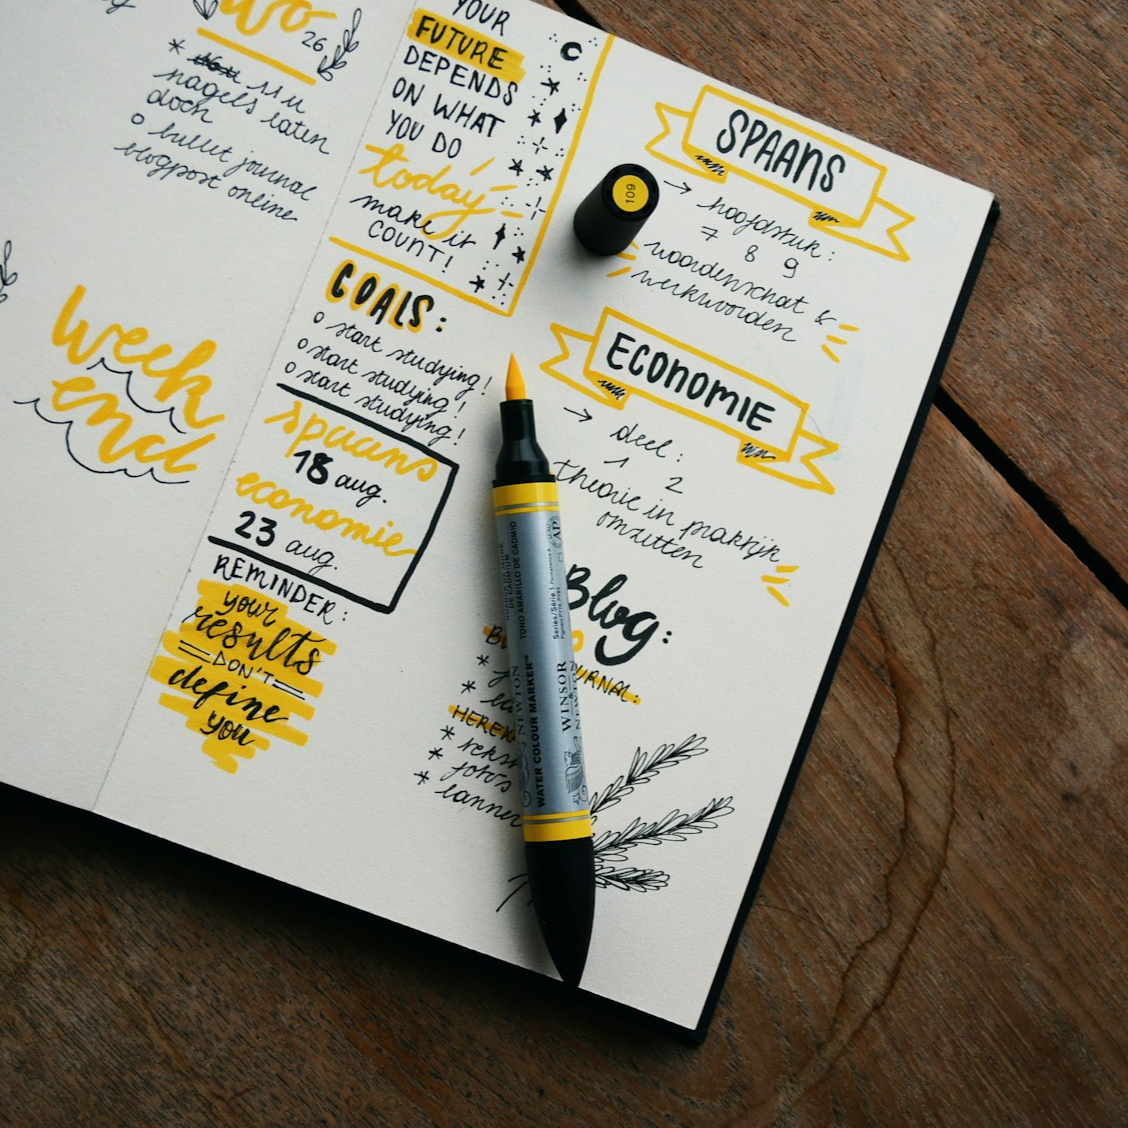 wo
26
* 11 u
nagels laten
doen
o bullet journal
blogpost online
week
end
YOUR
FUTURE
DEPENDS
ON WHAT
YOU DO
today
make it
COUNT!
GOALS:
o start studying!
o start studying!
o start studying!
spaans
18 aug.
economie
23 aug.
REMINDER:
your
results
DON'T
define
you
SPAANS
→ hoofdstuk:
7 8 9
woordenschat &
werkwoorden
ECONOMIE
→ deel:
1 2
theorie in praktijk
omzetten
Blog:
JOURNAL:
*
*
*
* foto's
*
109
TONO AMARILLO DE CADMIO
Series/Série 1
WINSOR
& NEWTON
WATER COLOUR MARKER™